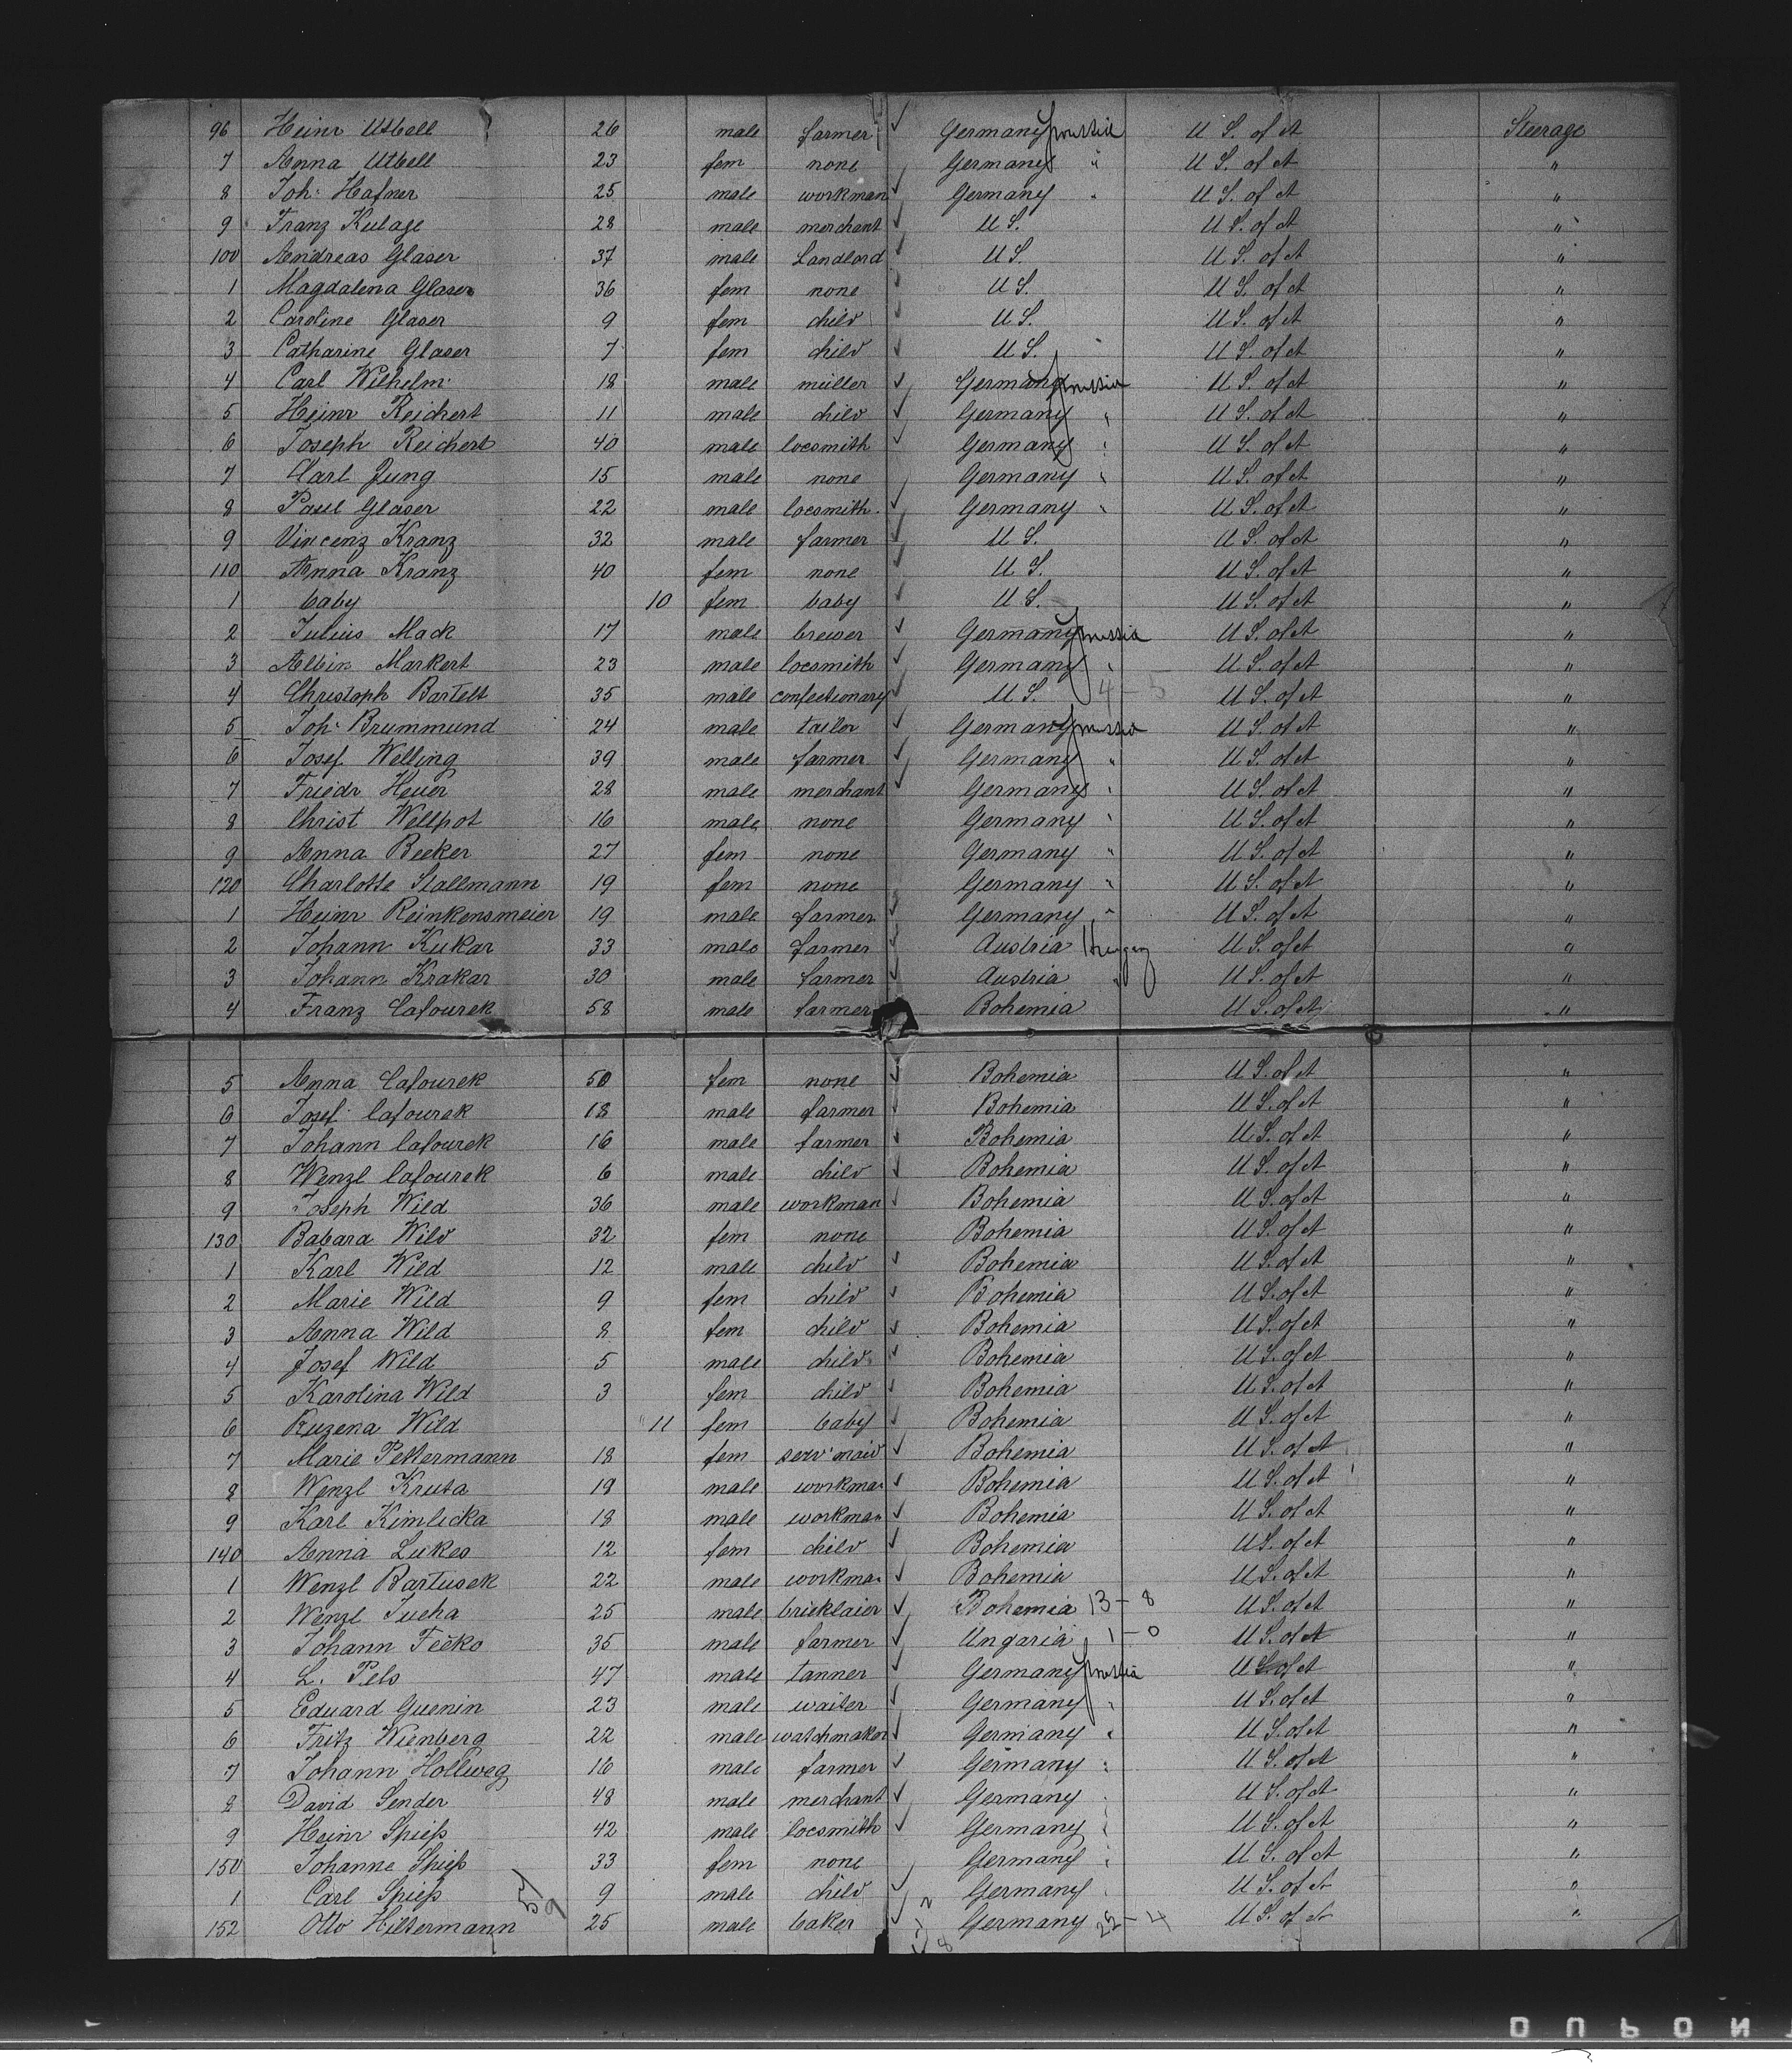 96 Heinr Utbell 26 male farmer ✓ Germany Prussia U S. of A Steerage
7 Anna Utbell 23 fem none Germany " U S. of A "
8 Joh: Hafner 25 male workman ✓ Germany " U S. of A "
9 Franz Kulage 28 male merchant ✓ U S. U S. of A "
100 Andreas Glaser 37 male Landlord ✓ U S. U S. of A "
1 Magdalena Glaser 36 fem none ✓ U S. U S. of A "
2 Caroline Glaser 9 fem child ✓ U S. U S. of A "
3 Catharine Glaser 7 fem child ✓ U S. U S. of A "
4 Carl Wilhelm 18 male müller ✓ Germany Prussia U S. of A "
5 Heinr Reichert 11 male child ✓ Germany " U S. of A "
6 Joseph Reichert 40 male locsmith ✓ Germany " U S. of A "
7 Carl Jung 15 male none Germany " U S. of A "
8 Paul Glaser 22 male locsmith ✓ Germany " U S. of A "
9 Vincenz Kranz 32 male farmer ✓ U S. U S. of A "
110 Anna Kranz 40 fem none ✓ U S. U S. of A "
1 baby 10 fem baby ✓ U S. U S. of A "
2 Julius Mack 17 male brewer ✓ Germany Prussia U S. of A "
3 Albin Markert 23 male locsmith ✓ Germany " U S. of A "
4 Christoph Bartelt 35 male confectionary ✓ U S. 4-5 U S. of A "
5 Joh: Brummund 24 male tailor ✓ Germany Prussia U S. of A "
6 Josef Welling 39 male farmer ✓ Germany " U S. of A "
7 Friedr Heuer 28 male merchant ✓ Germany " U S. of A "
8 Christ Wellpot 16 male none Germany " U S. of A "
9 Anna Becker 27 fem none Germany " U S. of A "
120 Charlotte Stallmann 19 fem none Germany " U S. of A "
1 Heinr Reinkensmeier 19 male farmer ✓ Germany " U S. of A "
2 Johann Kukar 33 male farmer ✓ Austria Hungary U S. of A "
3 Johann Krakar 30 male farmer ✓ Austria " U S. of A "
4 Franz Cafourek 58 male farmer Bohemia U S. of A "
5 Anna Cafourek 50 fem none ✓ Bohemia U S. of A "
6 Josef Cafourek 18 male farmer ✓ Bohemia U S. of A "
7 Johann Cafourek 16 male farmer ✓ Bohemia U S. of A "
8 Wenzl Cafourek 6 male child ✓ Bohemia U S. of A "
9 Joseph Wild 36 male workman ✓ Bohemia U S. of A "
130 Babara Wild 32 fem none Bohemia U S. of A "
1 Karl Wild 12 male child ✓ Bohemia U S. of A "
2 Marie Wild 9 fem child ✓ Bohemia U S. of A "
3 Anna Wild 8 fem child ✓ Bohemia U S. of A "
4 Josef Wild 5 male child ✓ Bohemia U S. of A "
5 Karolina Wild 3 fem child ✓ Bohemia U S. of A "
6 Ruzena Wild 11 fem baby ✓ Bohemia U S. of A "
7 Marie Pettermann 18 fem serv maid ✓ Bohemia U S. of A "
8 Wenzl Kruta 19 male workman ✓ Bohemia U S. of A "
9 Karl Kimlicka 18 male workman ✓ Bohemia U S. of A "
140 Anna Lukes 12 fem child ✓ Bohemia U S. of A "
1 Wenzl Bartusek 22 male workman ✓ Bohemia U S. of A "
2 Wenzl Tucha 25 male bricklaier ✓ Bohemia 13-8 U S. of A "
3 Johann Fečko 35 male farmer ✓ Ungaria 1-0 U S. of A "
4 L. Pels 47 male tanner ✓ Germany Prussia U S. of A "
5 Eduard Guenin 23 male waiter ✓ Germany " U S. of A "
6 Fritz Wienberg 22 male watchmaker ✓ Germany " U S. of A "
7 Johann Hollweg 16 male farmer ✓ Germany " U S. of A "
8 David Sender 48 male merchant ✓ Germany " U S. of A "
9 Heinr Spieß 42 male locsmith ✓ Germany " U S. of A "
150 Johanne Spieß 33 fem none Germany " U S. of A "
1 Carl Spieß 9 male child ✓ Germany " U S. of A "
152 Otto Hiltermann 25 male baker ✓ Germany 22-4 U S. of A "
DUPON